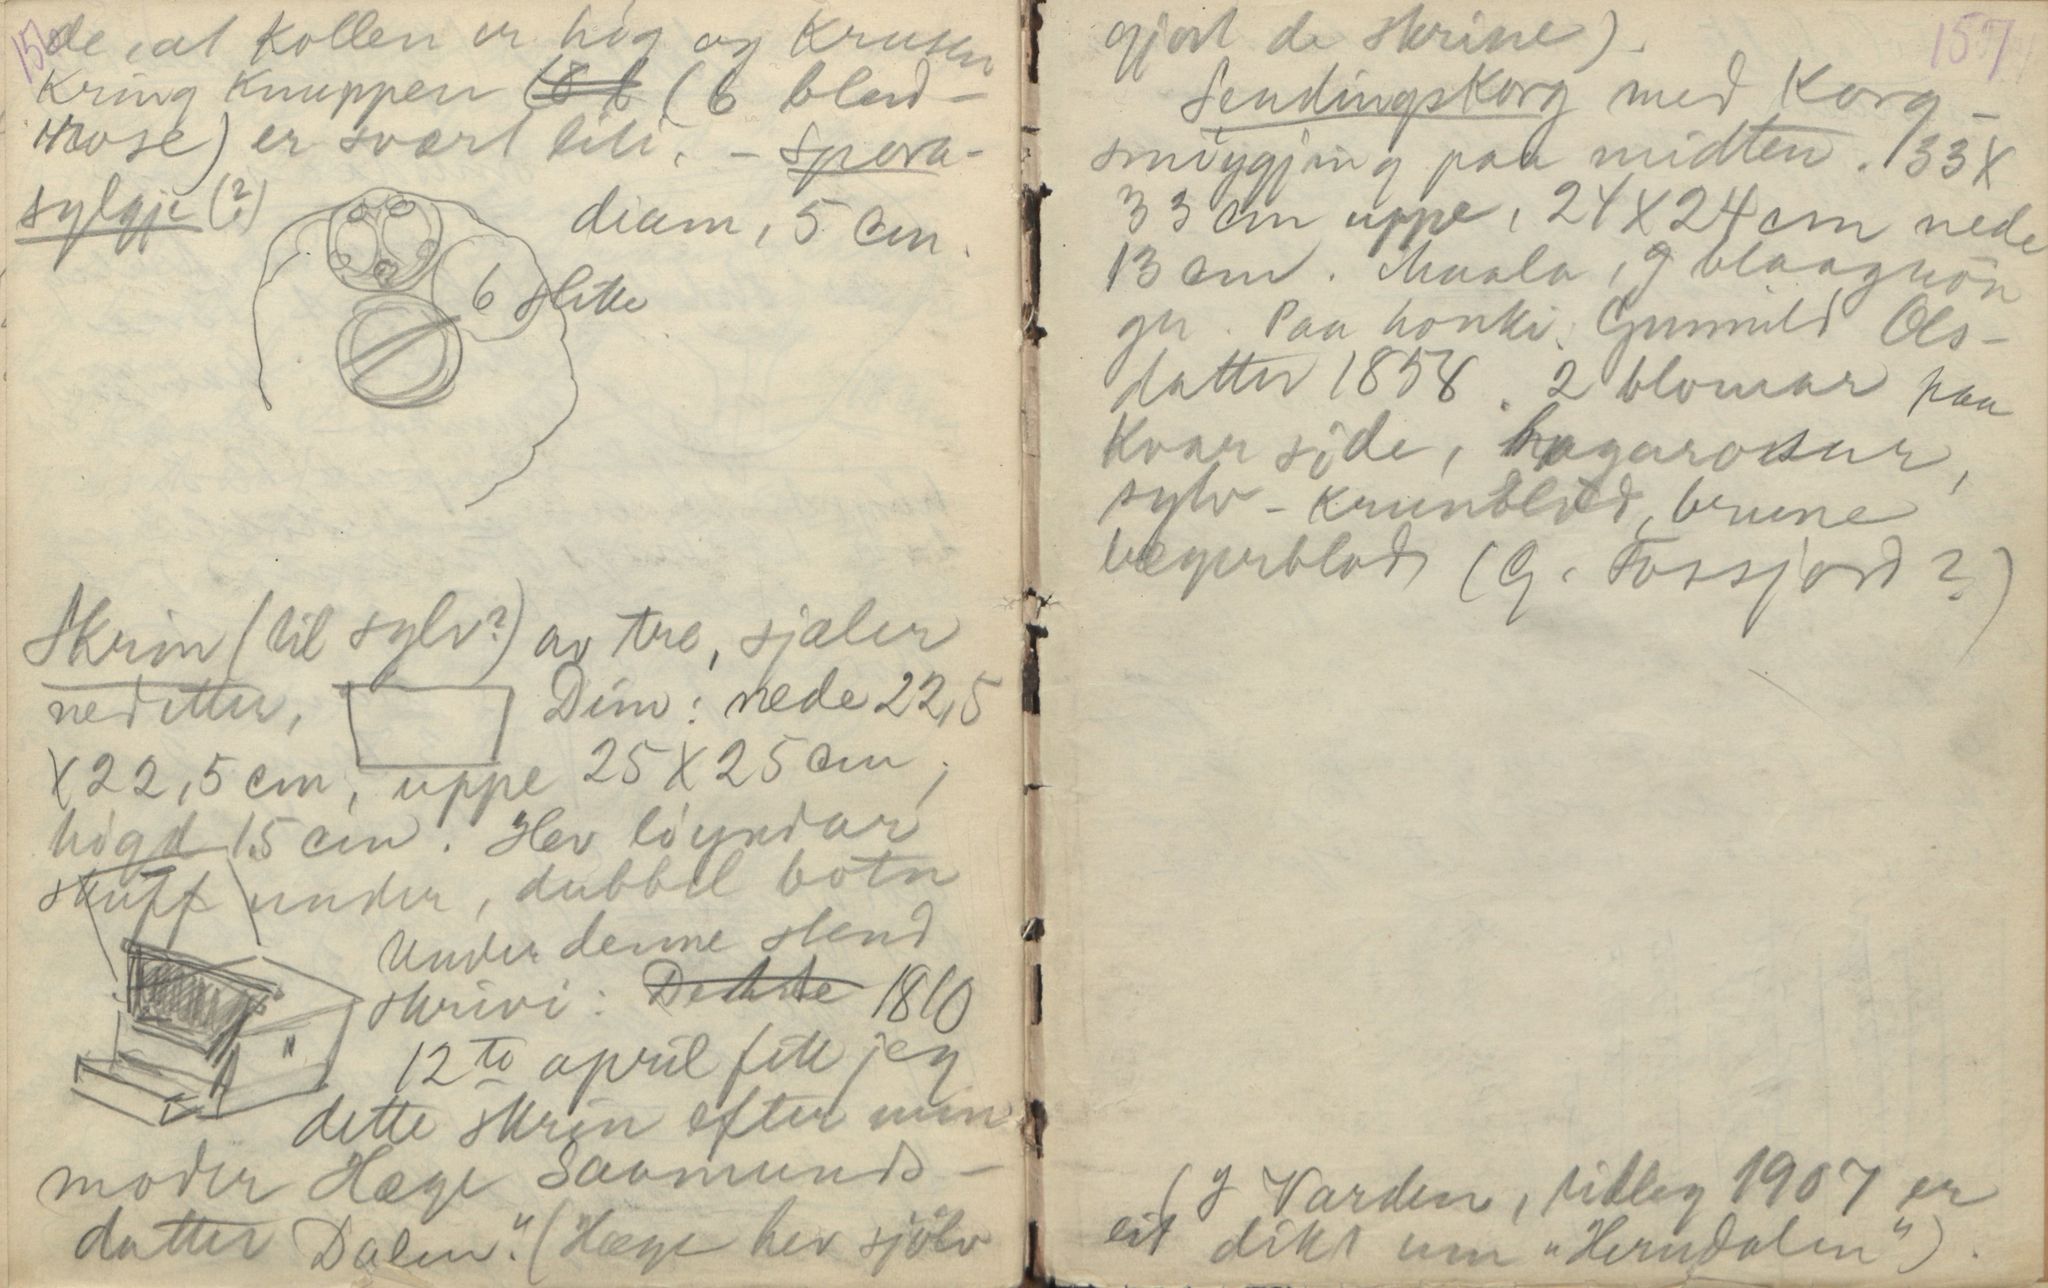 156
de, at kollen er høg og krusen
kring knuppen (6 blad-
rose) er svært liti. - Spora-
sylgje (?)
diam, 5 cm.
6 slike
Skrin (til sylv?) av tre, sjæler
nedetter,
Dim: nede 22,5
X 22,5 cm, uppe 25 X 25 cm,
høgd 15 cm. Hev løyndar
skuff under, dubbel botn
Under denne stend
skrivi: 1810
12te april fik jeg
dette skrin efter min
moder Hæge Saamunds-
datter Dalen." (Hæge hev sjølv
157
gjort de skrine).
Sendingskorg med korg-
smøygjing paa midten. 33 X
33 cm uppe, 24 X 24 cm nede
13 cm. Maala, i blaagrøn
gr. Paa honki: Gunnild Ols-
datter 1858. 2 blomar paa
kvar side, hagarosur,
sylv-krunblad, brune
begerblad (G. Fossjord?)
(I Varden, tidleg 1907 er
eit dikt um "Herudalen").